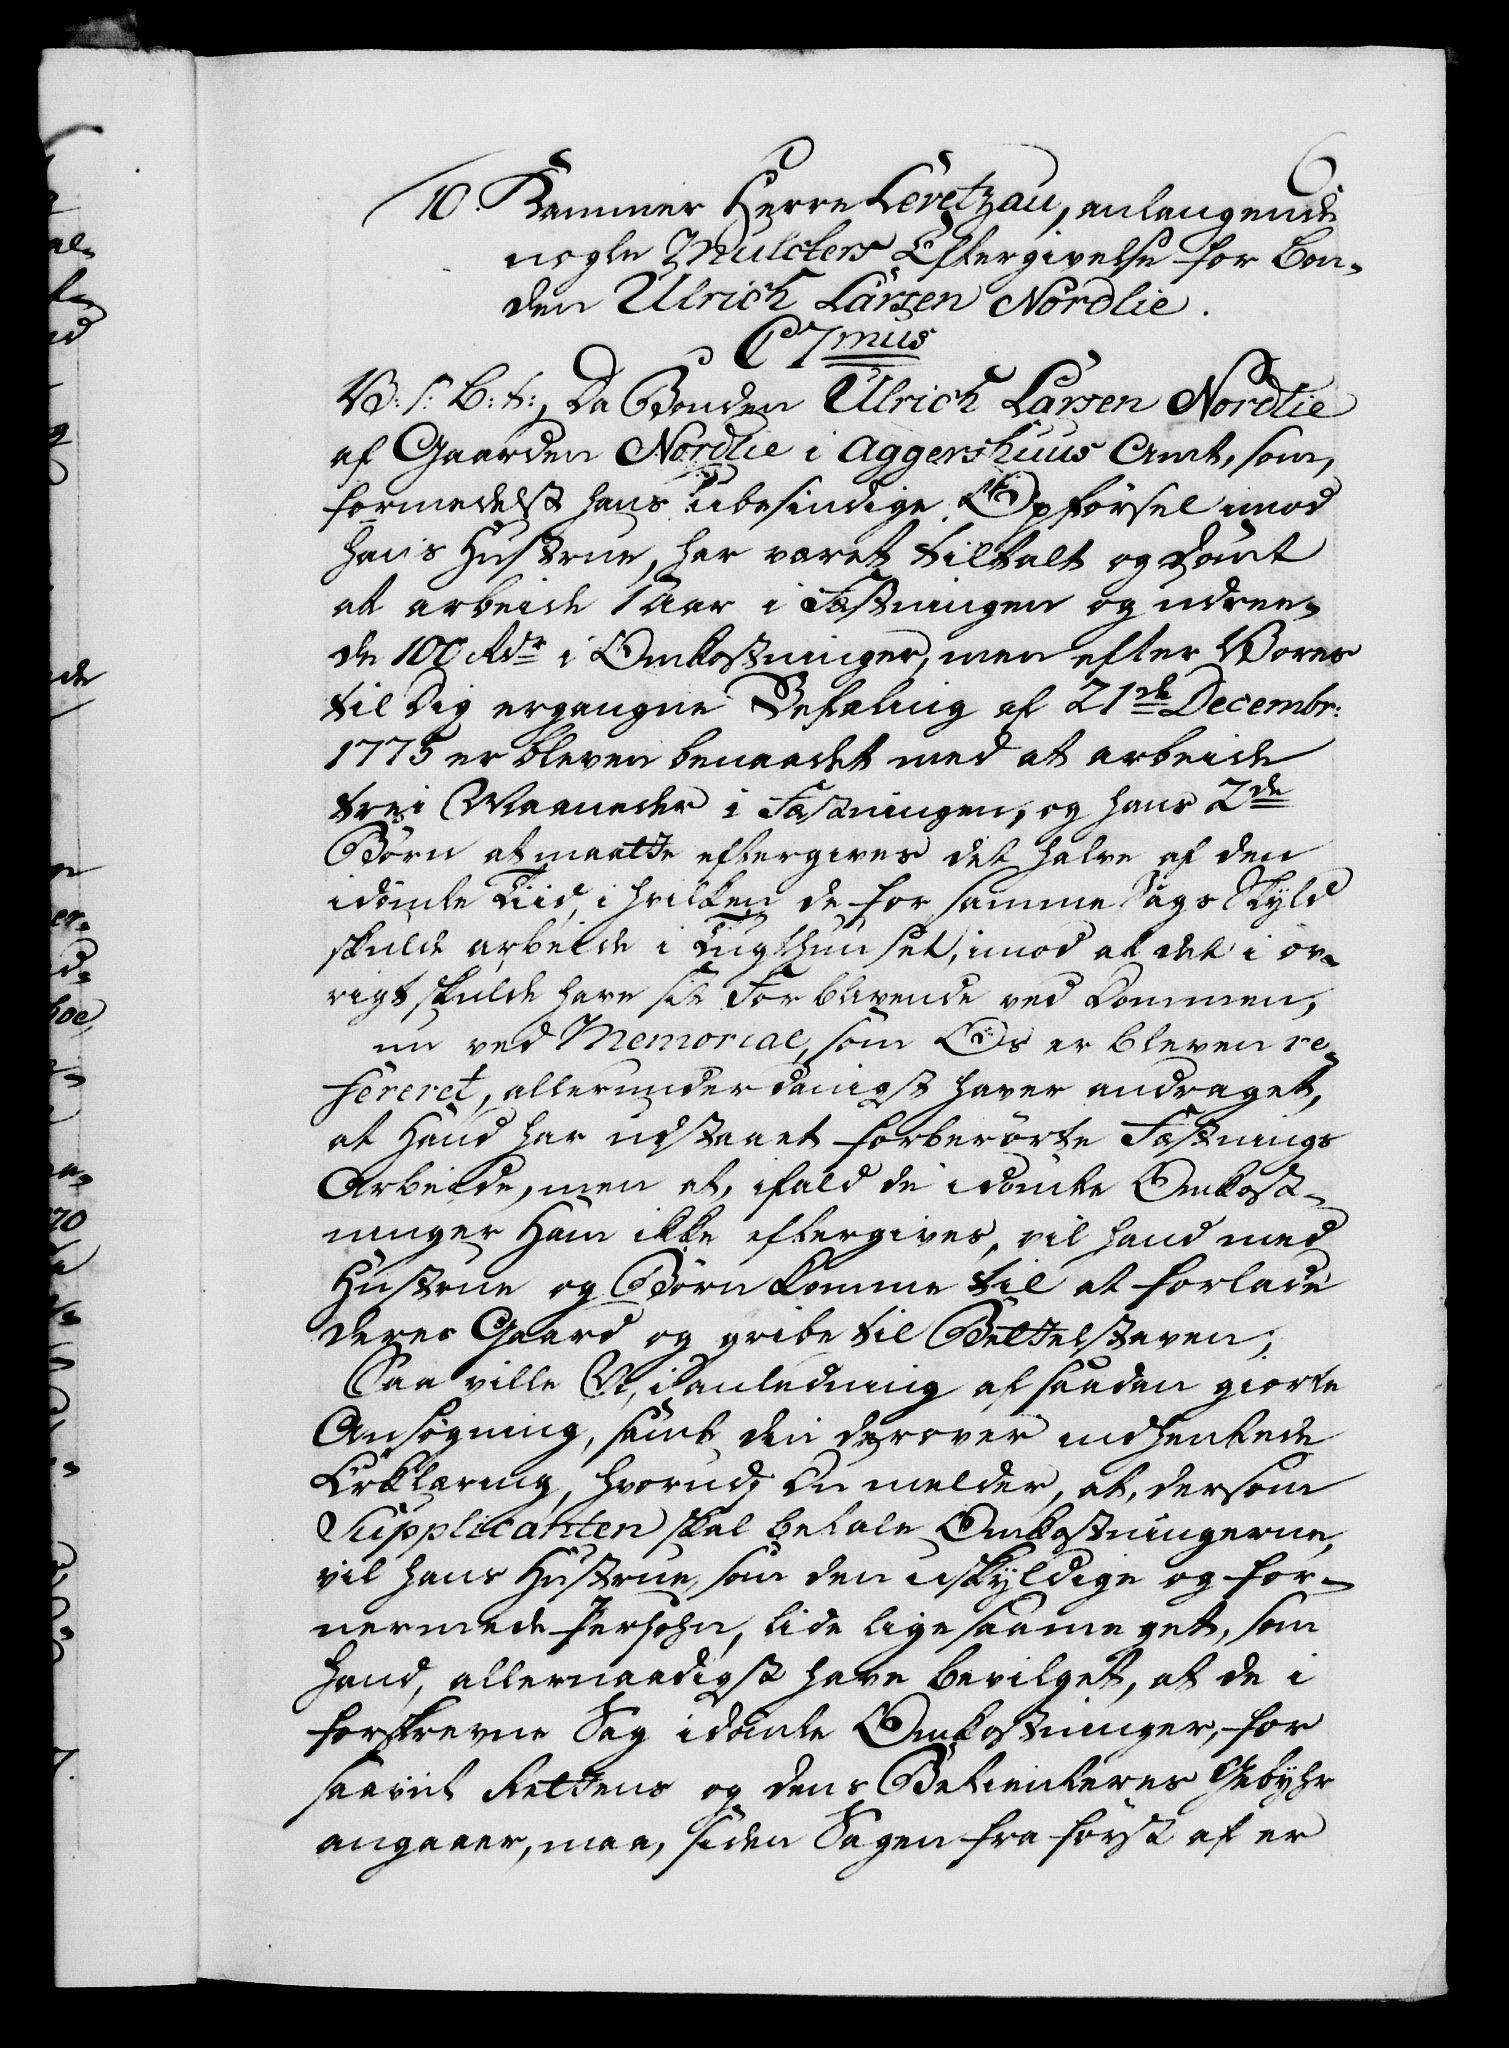 6
10. Kammer Herre Levetzau, anlangende
nogle Mulcters Eftergivelse for Bon-
den Ulrich Larsen Nordlie.
C 7mus
V: S: B: t:, Da Bonden Ulrich Larsen Nordlie
af Gaarden Nordlie i Aggershuus Amt, som,
formedelst hans ubesindige Opførsel imod
hans Hustrue, har været tiltalt og dømt
at arbeide 1 Aar i Fæstningen og udree-
de 100 Rdr i Omkostninger, men efter Vores
til Dig ergangne Befaling af 21de Decembr:
1775 er bleven benaadet med at arbeide
trei Maaneder i Fæstningen, og hans 2de
Børn at maatte eftergives det halve af den
idømte Tiid, i hvilken de for samme Sags Skyld
skulde arbeide i Tugthuuset, imod at det i øv-
rigt skulde have sit Forblivende ved Dommen,
nu ved Memorial, som Os er bleven re-
fereret, allerunderdanigst haver andraget,
at Hand har udstaaet forberørte Fæstnings
Arbeide, men at, ifald de idømte Omkost-
ninger Ham ikke eftergives, vil hand med
Hustrue og Børn komme til at forlade
deres Gaard og gribe til Bettelstaven;
Saa ville Vi, i anledning af saadan giorte
Ansøgning, samt den derover indhentede
Erklæring, hvorudj Du melder, at, dersom
Supplicanten skal betale Omkostningerne,
vil hans Hustrue, som den uskyldige og for-
nermede Persohn, lide lige saameget, som
hand, allernaadigst have bevilget, at de i
forskrevne Sag idømte Omkostninger, for
saavit Rettens og dens Betienteres Gebyhr
angaaer, maa, siden Sagen fra først af er